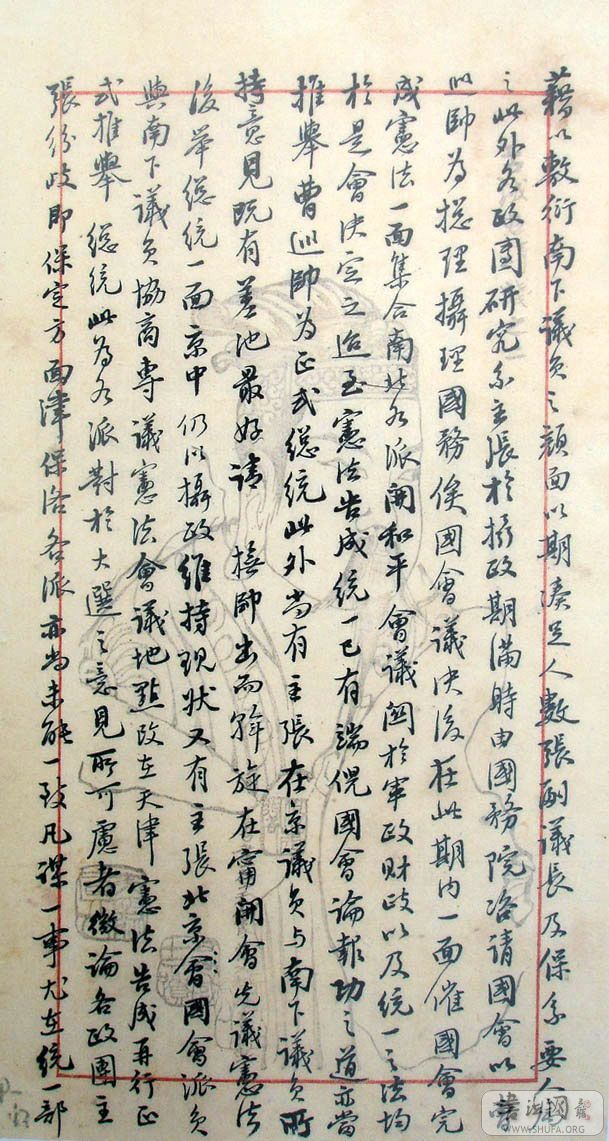 藉以敷衍南下議員之顏面以期湊足人數張副議長及保系要人
之此外各政團研究系主張於攝政期滿時由國務院咨請國會以
帥為揔理攝理國務俟國會議決後在此期内一面催國會完
成憲法一面集合南北各派開和平會議関於軍政財政以及統一之法均
於是會決定之迨至憲法告成統一已有端倪國會論報功之道亦當
推舉曹巡帥為正式總统此外尚有主張在京議員与南下議員所
持意見既有差池最好請 帥出而斡旋在甯開會先議憲法
後举總统一面京中仍以攝政維持現状又有主張北京國會派員
與南下議員協商專議憲法會議地點改在天津憲法告成再行正
式推舉總统此為各派對於大選之意見所可慮者微論各政團主
張紛歧即保定方面津保洛各派亦尚未能一致凡謀一事尤在統一部
書法國
WWW.SHUFA.ORG